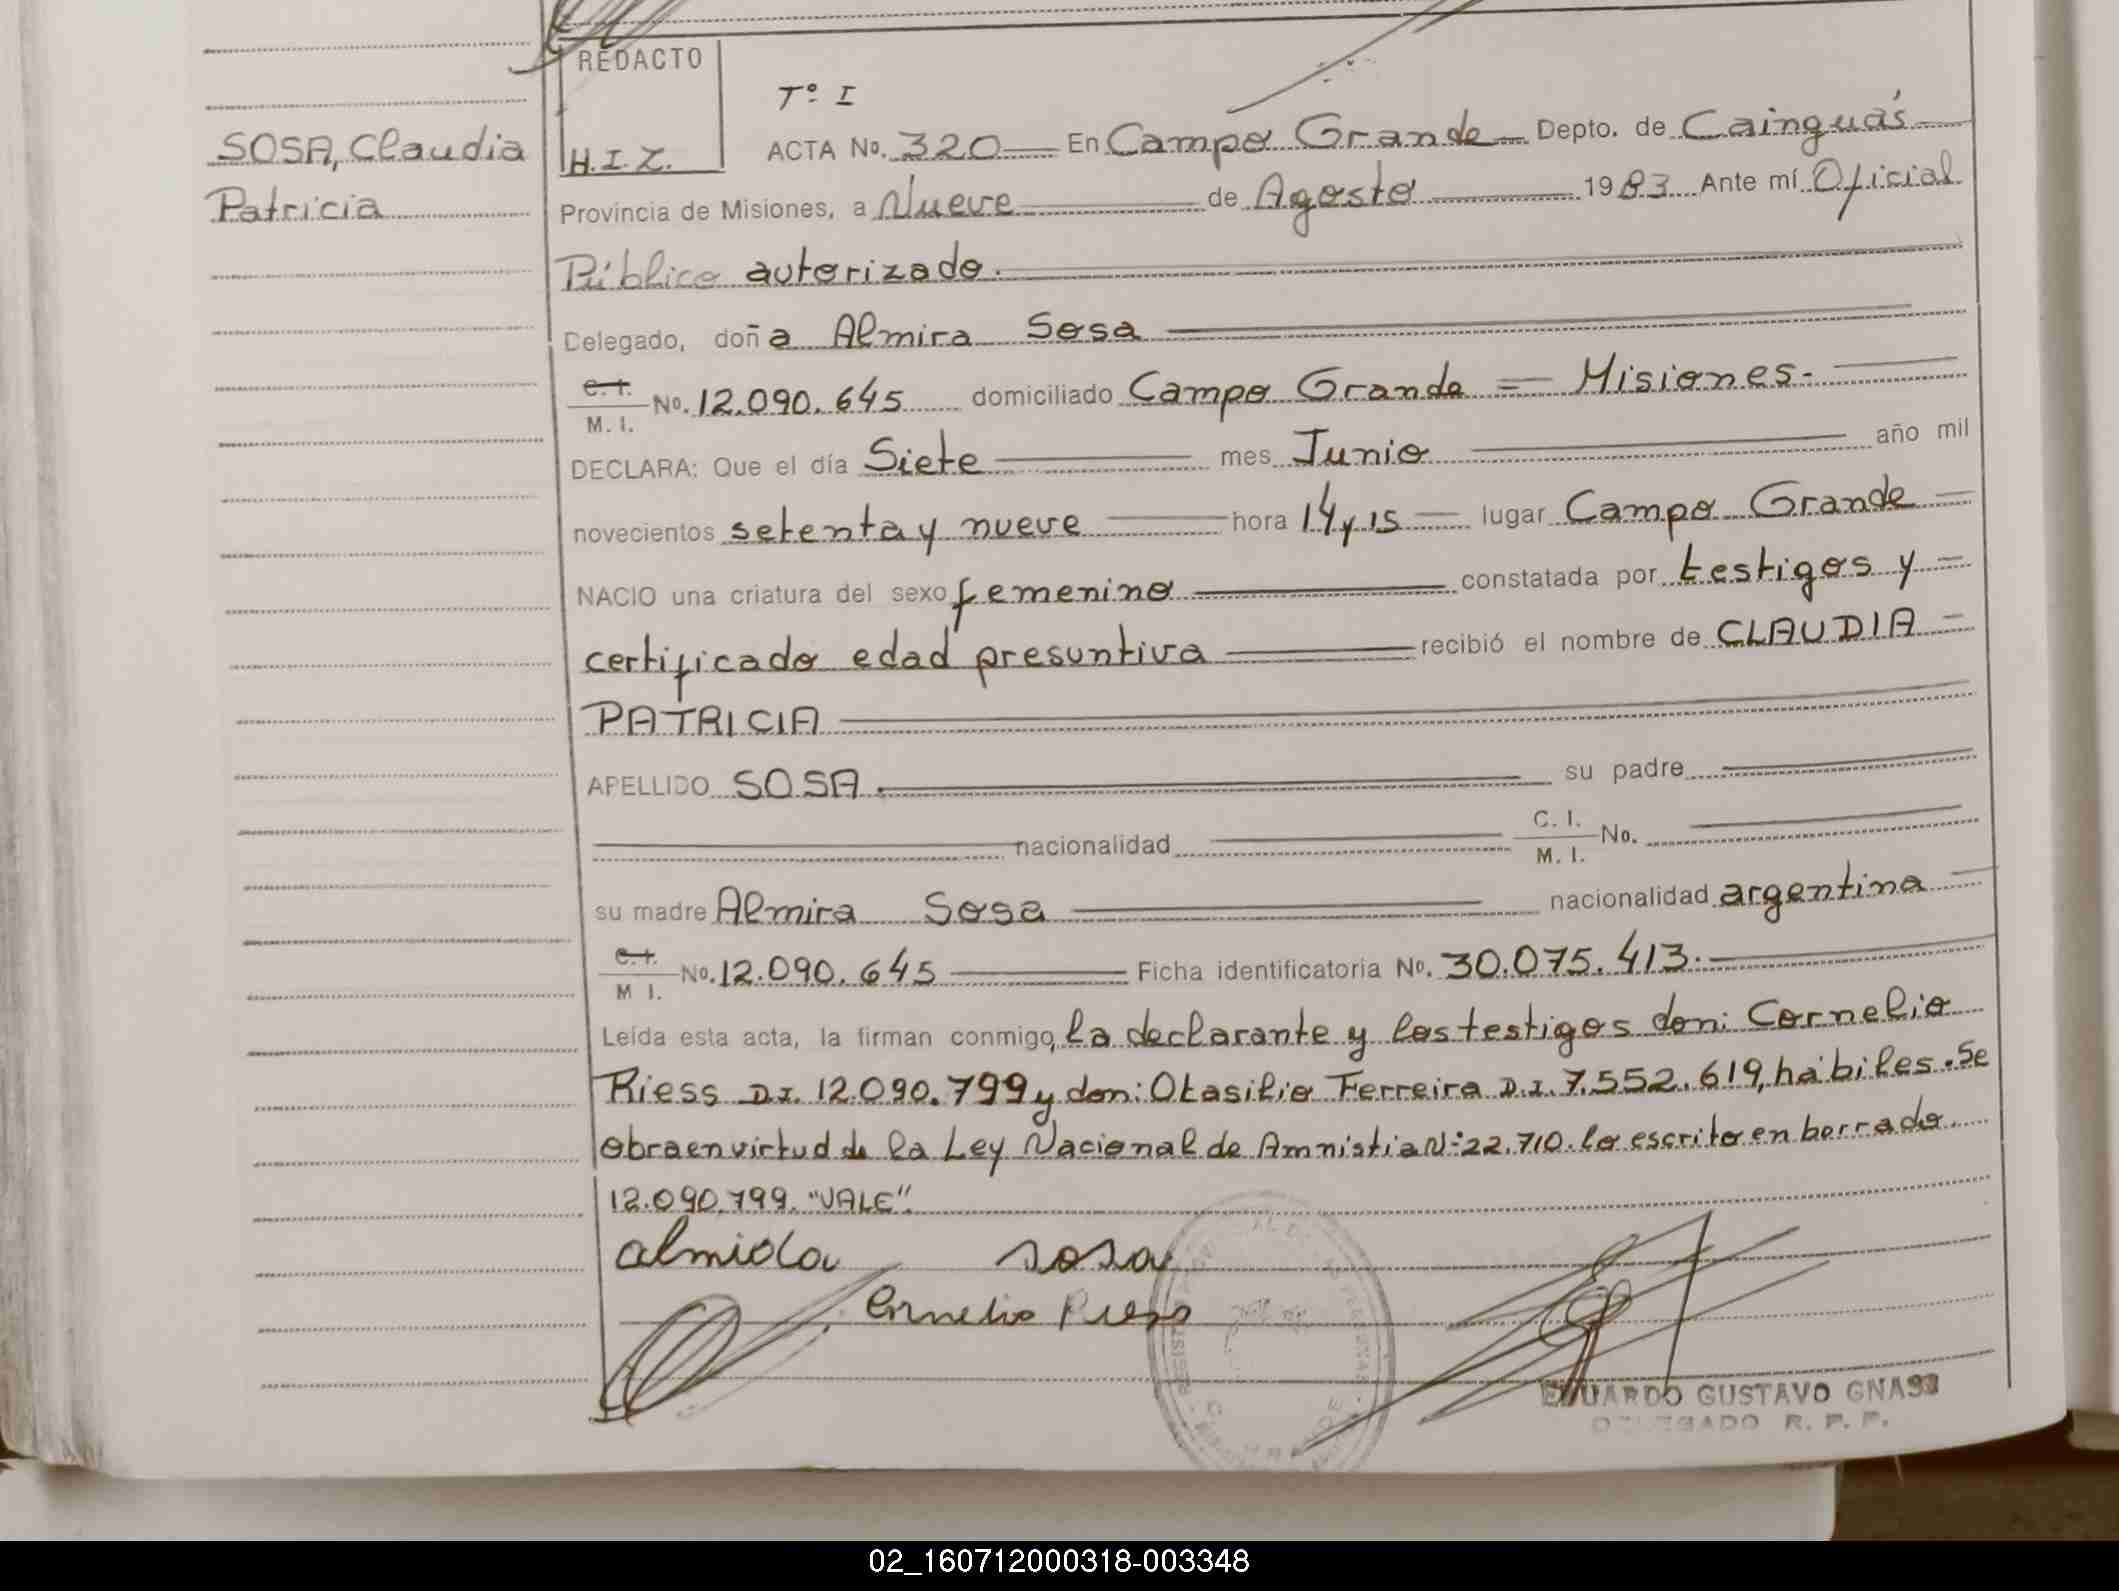 REDACTO
Tº I
SOSA, Claudia
Patricia
H.I.Z.
ACTA No. 320 En Campo Grande Depto. de Cainguás
Provincia de Misiones, a Nueve de Agosto 1983 Ante mí Oficial
Público autorizado.
Delegado, doña Almira Sosa
C. I.
M. I. No. 12.090.645 domiciliado Campo Grande = Misiones.-
DECLARA: Que el día Siete mes Junio año mil
novecientos setenta y nueve hora 14 y 15 lugar Campo Grande
NACIO una criatura del sexo femenino constatada por testigos y
certificado edad presuntiva recibió el nombre de CLAUDIA
PATRICIA
APELLIDO SOSA. su padre
nacionalidad C. I. No.
M. I.
su madre Almira Sosa nacionalidad argentina
C. I.
M I. No. 12.090.645 Ficha identificatoria No. 30.075.413.
Leída esta acta, la firman conmigo, la declarante y los testigos don: Cornelio
Riess D.I. 12.090.799 y don: Otasilio Ferreira D.I. 7.552.619, hábiles. Se
obra en virtud de la Ley Nacional de Amnistia Nº 22.710. lo escrito en borrado
12.090.799. "VALE".
almida sosa
Cornelio Riess
EDUARDO GUSTAVO GNASS
DELEGADO R. P. P.
02_160712000318-003348